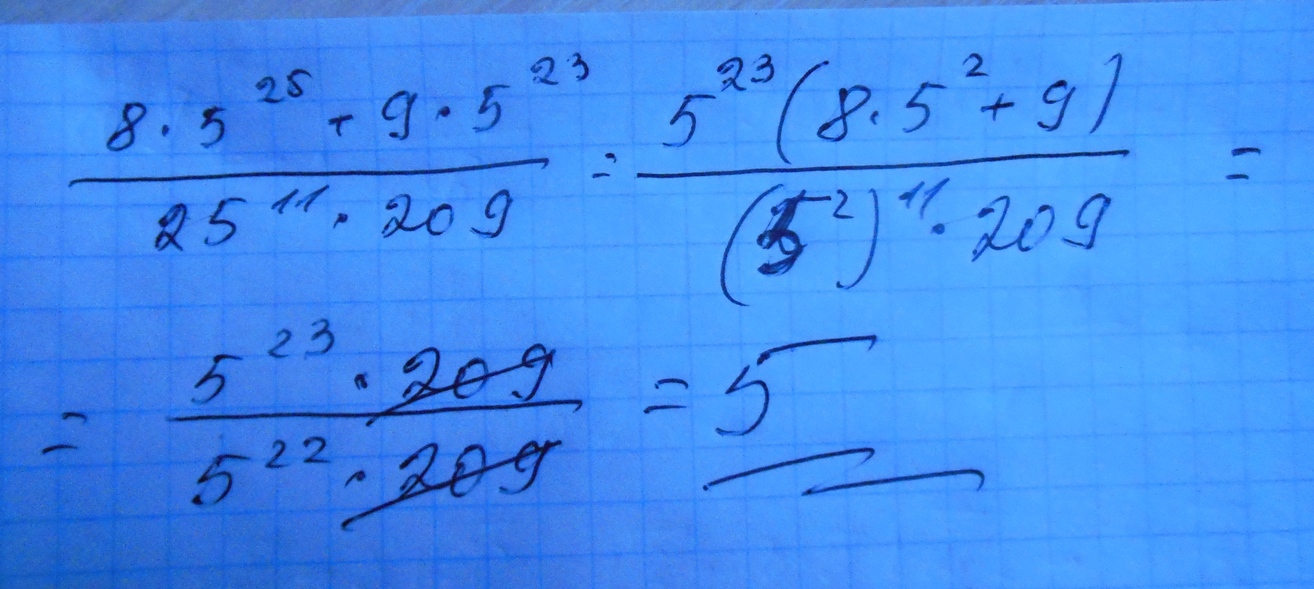 8·5²⁵ + 9·5²³ / 25¹¹·209 = 5²³(8·5² + 9) / (5²)¹¹·209 =
= 5²³·209 / 5²²·209 = 5